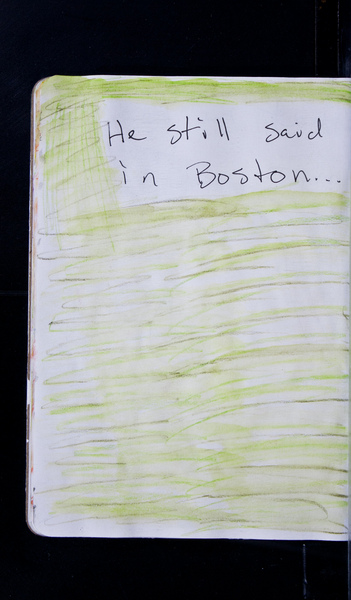 He still said
in Boston...